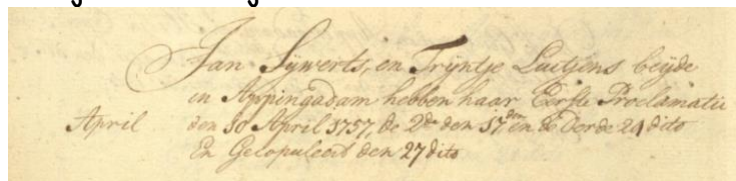 Jan Sywerts, en Tryntje Luitjens beyde
in Appingadam hebben haar Eerste Proclamatie
April den 10 April 1757, de 2de den 17den en de derde 24 dito
En Gecopuleert den 27 dito